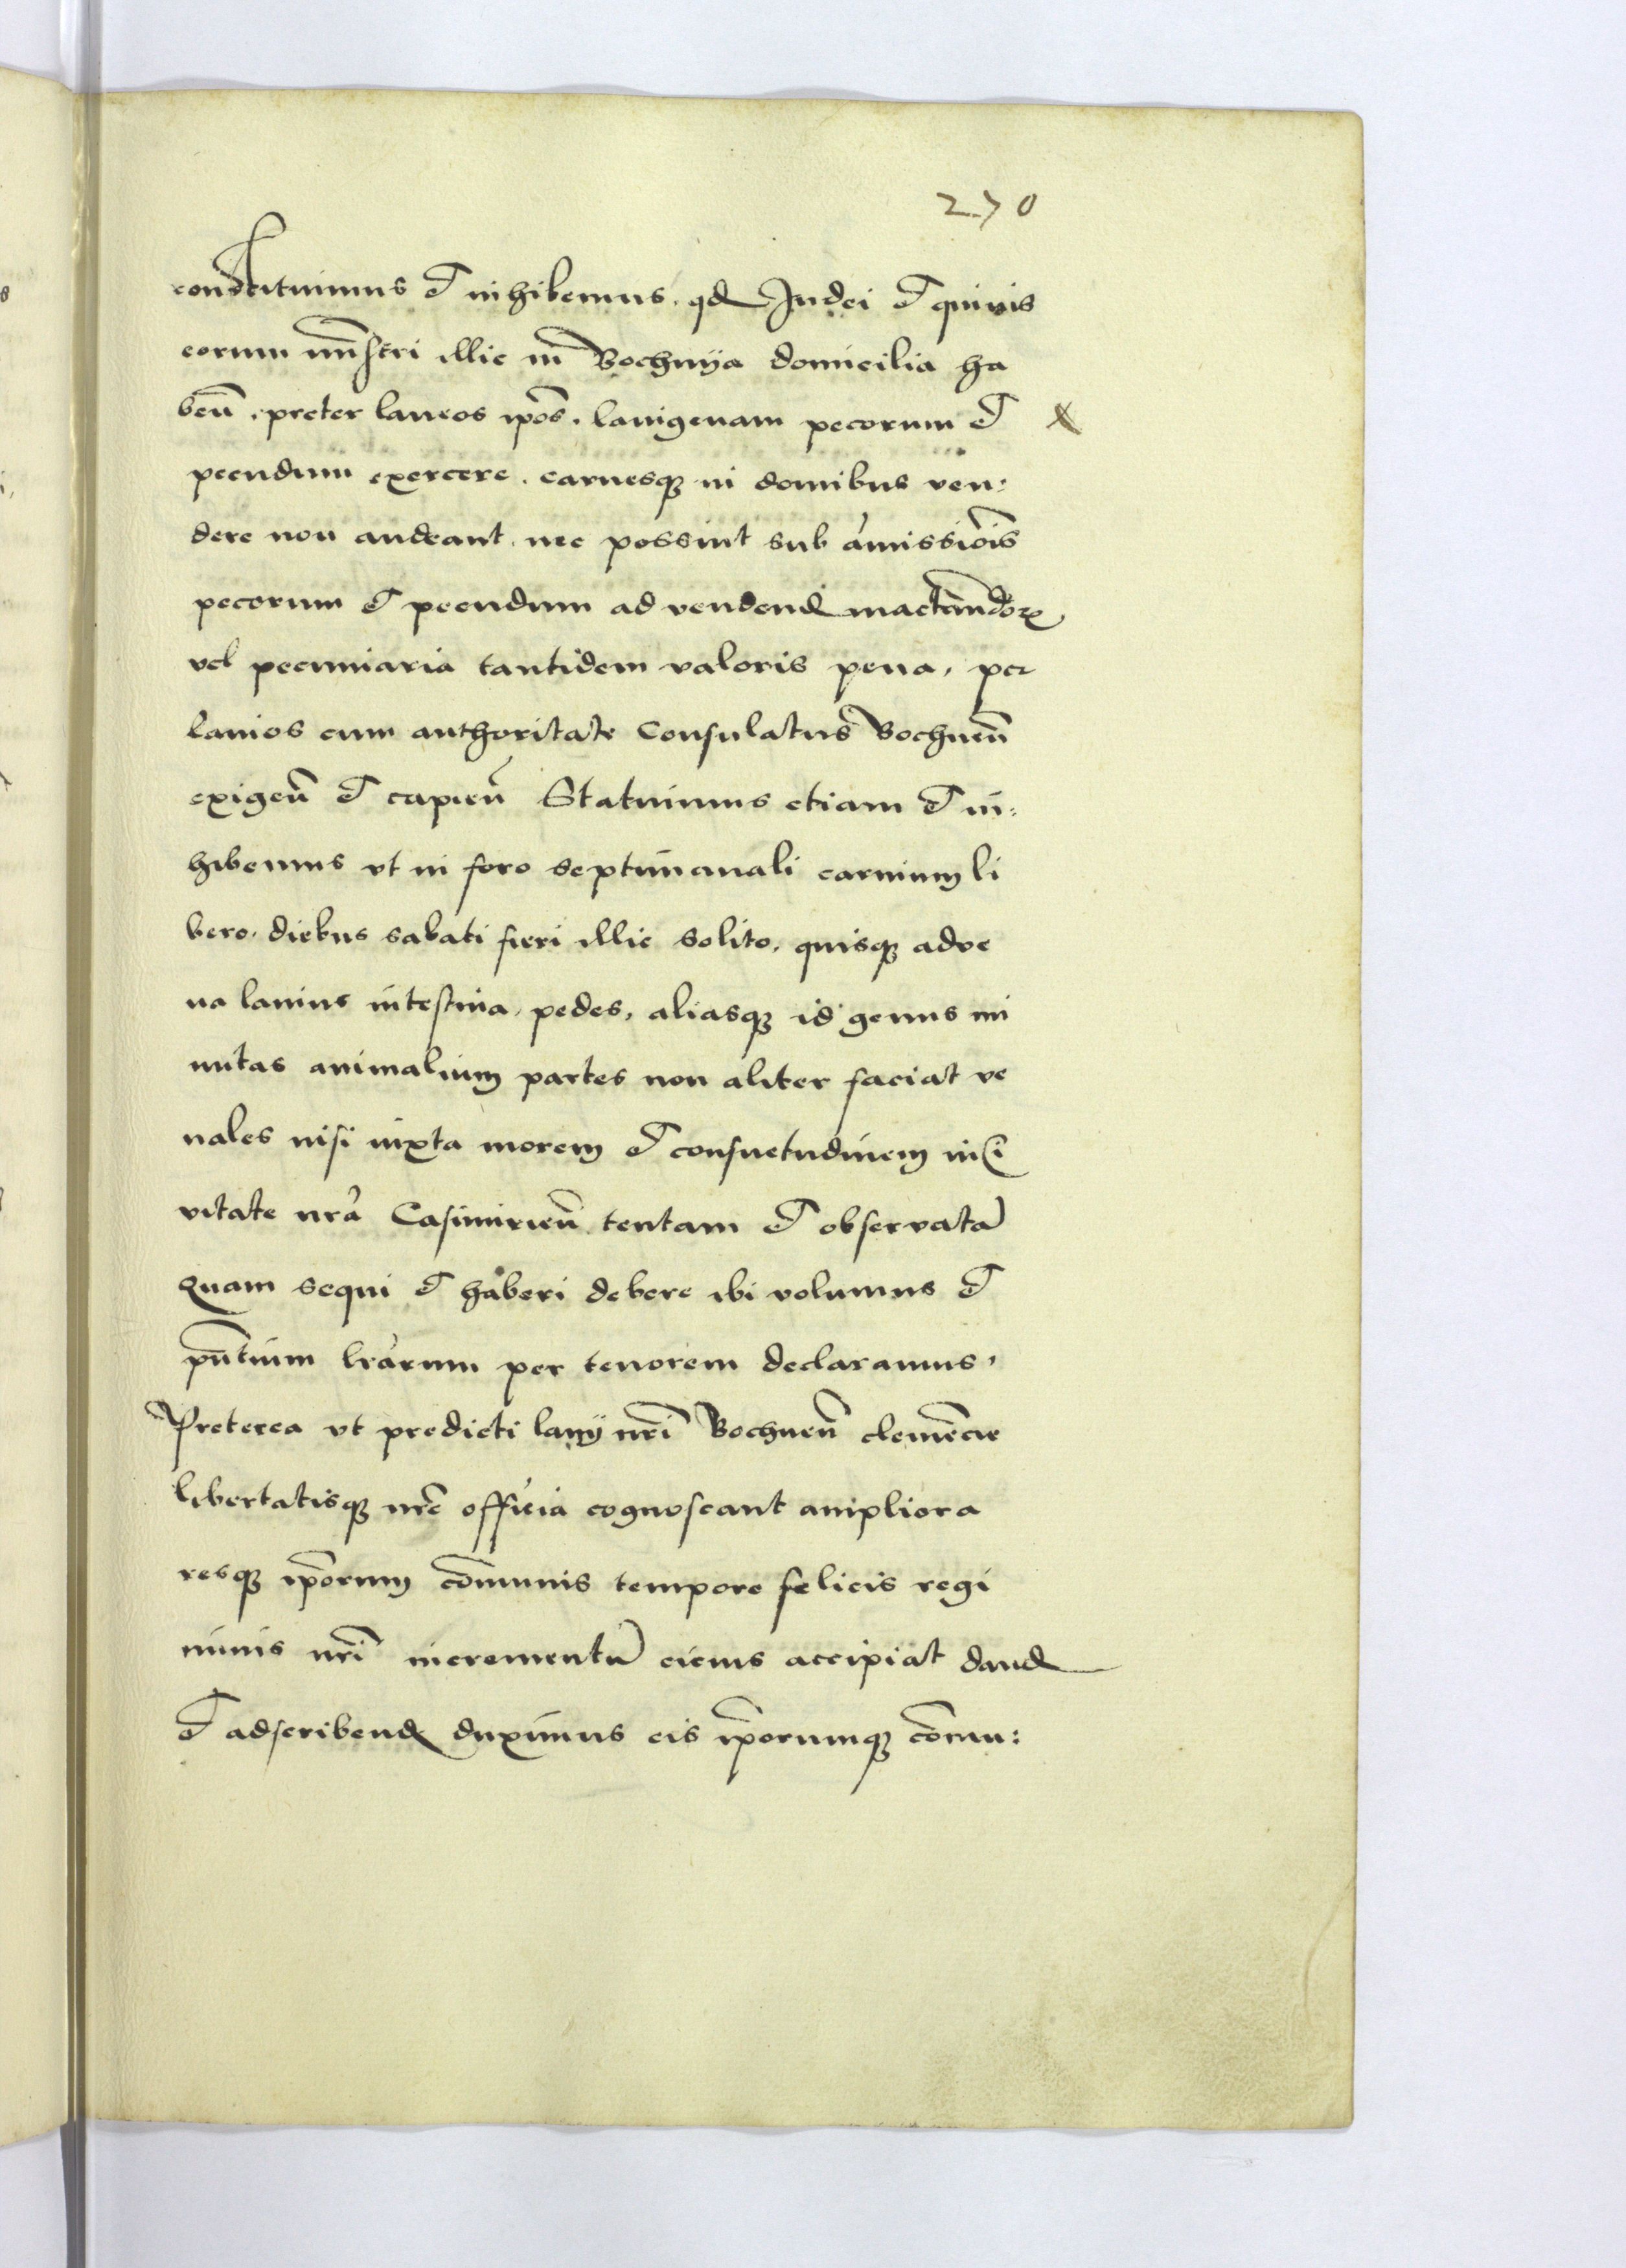 270
constituimus et inhibemus. qd Iudei et quivis
eorum mnꝰstri illic in Bochnya domicilia ha
ben̄. preter laneos ip̄os. lanigenam pecorum et
pecudum exercere. carnesqꝫ in domibus ven:
dere non audeant. nec possint sub amissiōis
pecorum et pecudum ad vendenđ mactandorꝝ
vel pecuniaria tantidem valoris pena, per
lanios cum authoritate Consulatus Bochnen̄
exigen̄ et capien̄ Statuimus etiam et in:
hibemus vt in foro septimanali carnium li
bero. diebus sabati fieri illic solito. quisqꝫ adve
na lanius intestina, pedes, aliasqꝫ id genus mi
nutas animalium partes non aliter faciat ve
nales nisi iuxta morem et consuetudinem in Ci
vitate nr̄a Casimirien̄ tentam et observatā
Quam sequi et haberi debere ibi volumus et
pn̄tium lr̄arum per tenorem declaramus,
Preterea vt predicti lanij nr̄i Bochnen̄ clemēcie
libertatisqꝫ nr̄e officia cognoscant ampliora
resqꝫ ip̄orum cōmunis tempore felicis regi
minis nr̄i incrementū eicius accipiat danđ
et adscribenđ duximus eis ip̄orumqꝫ cōmu: